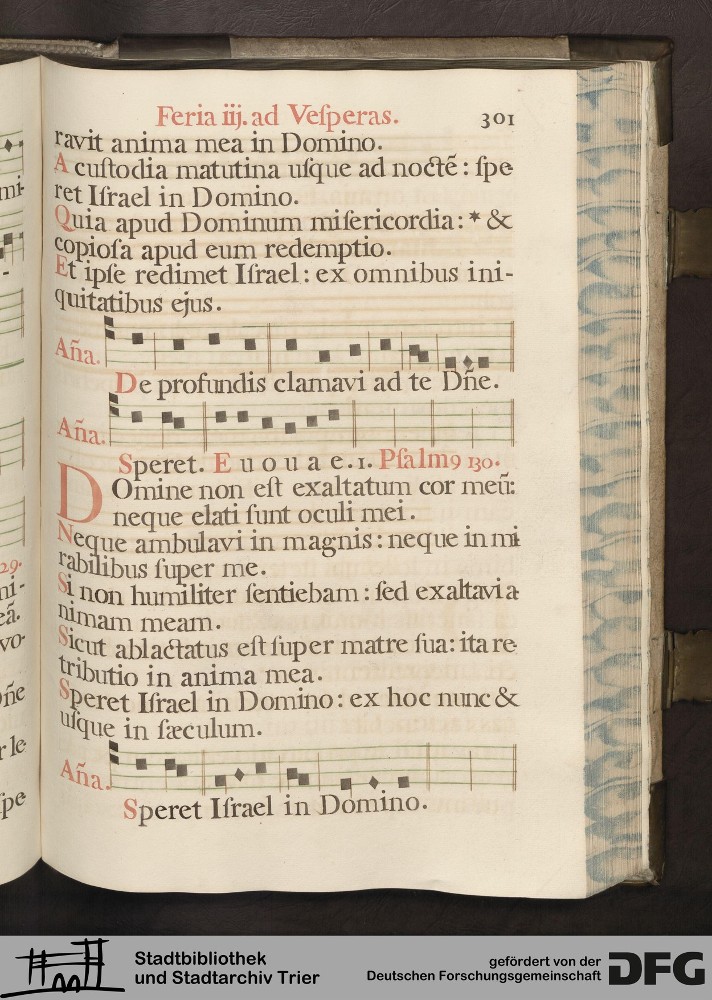 Feria iij. ad Veſperas. 301
ravit anima mea in Domino.
A cuſtodia matutina uſque ad noctē : ſpe-
ret Iſrael in Domino.
Quia apud Dominum miſericordia : * &
copioſa apud eum redemptio.
Et ipſe redimet Iſrael : ex omnibus ini-
quitatibus ejus.
Aña.
De profundis clamavi ad te Dñe.
Aña.
Speret. E u o u a e . 1. Pſalm9 130.
Domine non eſt exaltatum cor meū:
neque elati ſunt oculi mei.
Neque ambulavi in magnis : neque in mi
rabilibus ſuper me.
Si non humiliter ſentiebam : ſed exaltavi a
nimam meam.
Sicut ablactatus eſt ſuper matre ſua: ita re-
tributio in anima mea.
Speret Iſrael in Domino : ex hoc nunc &
uſque in ſæculum.
Aña.
Speret Iſrael in Domino.
mi-
29.
ni-
eā.
vo-
Dñe
r le-
ſpe
Stadtbibliothek
und Stadtarchiv Trier
gefördert von der
Deutschen Forschungsgemeinschaft
DFG